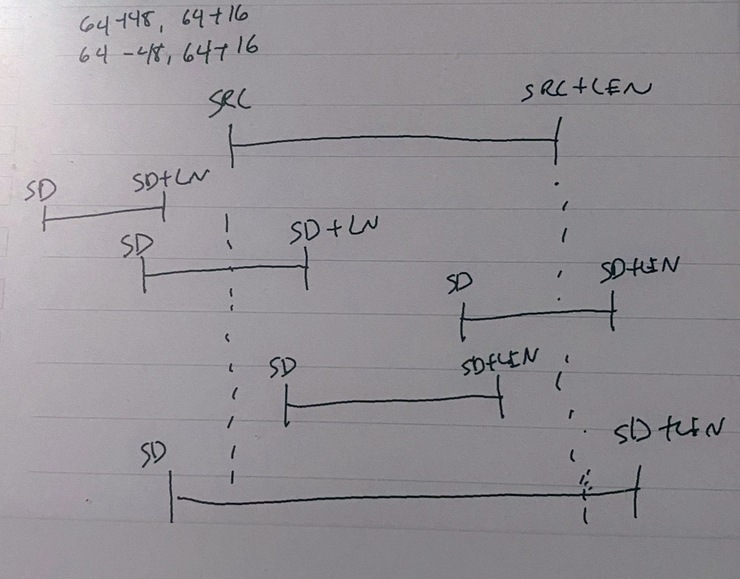 64+48, 64+16
64-48, 64+16
SRC SRC+LEN
SD SD+LN
SD SD+LN
SD SD+LEN
SD SD+LEN
SD SD+LEN